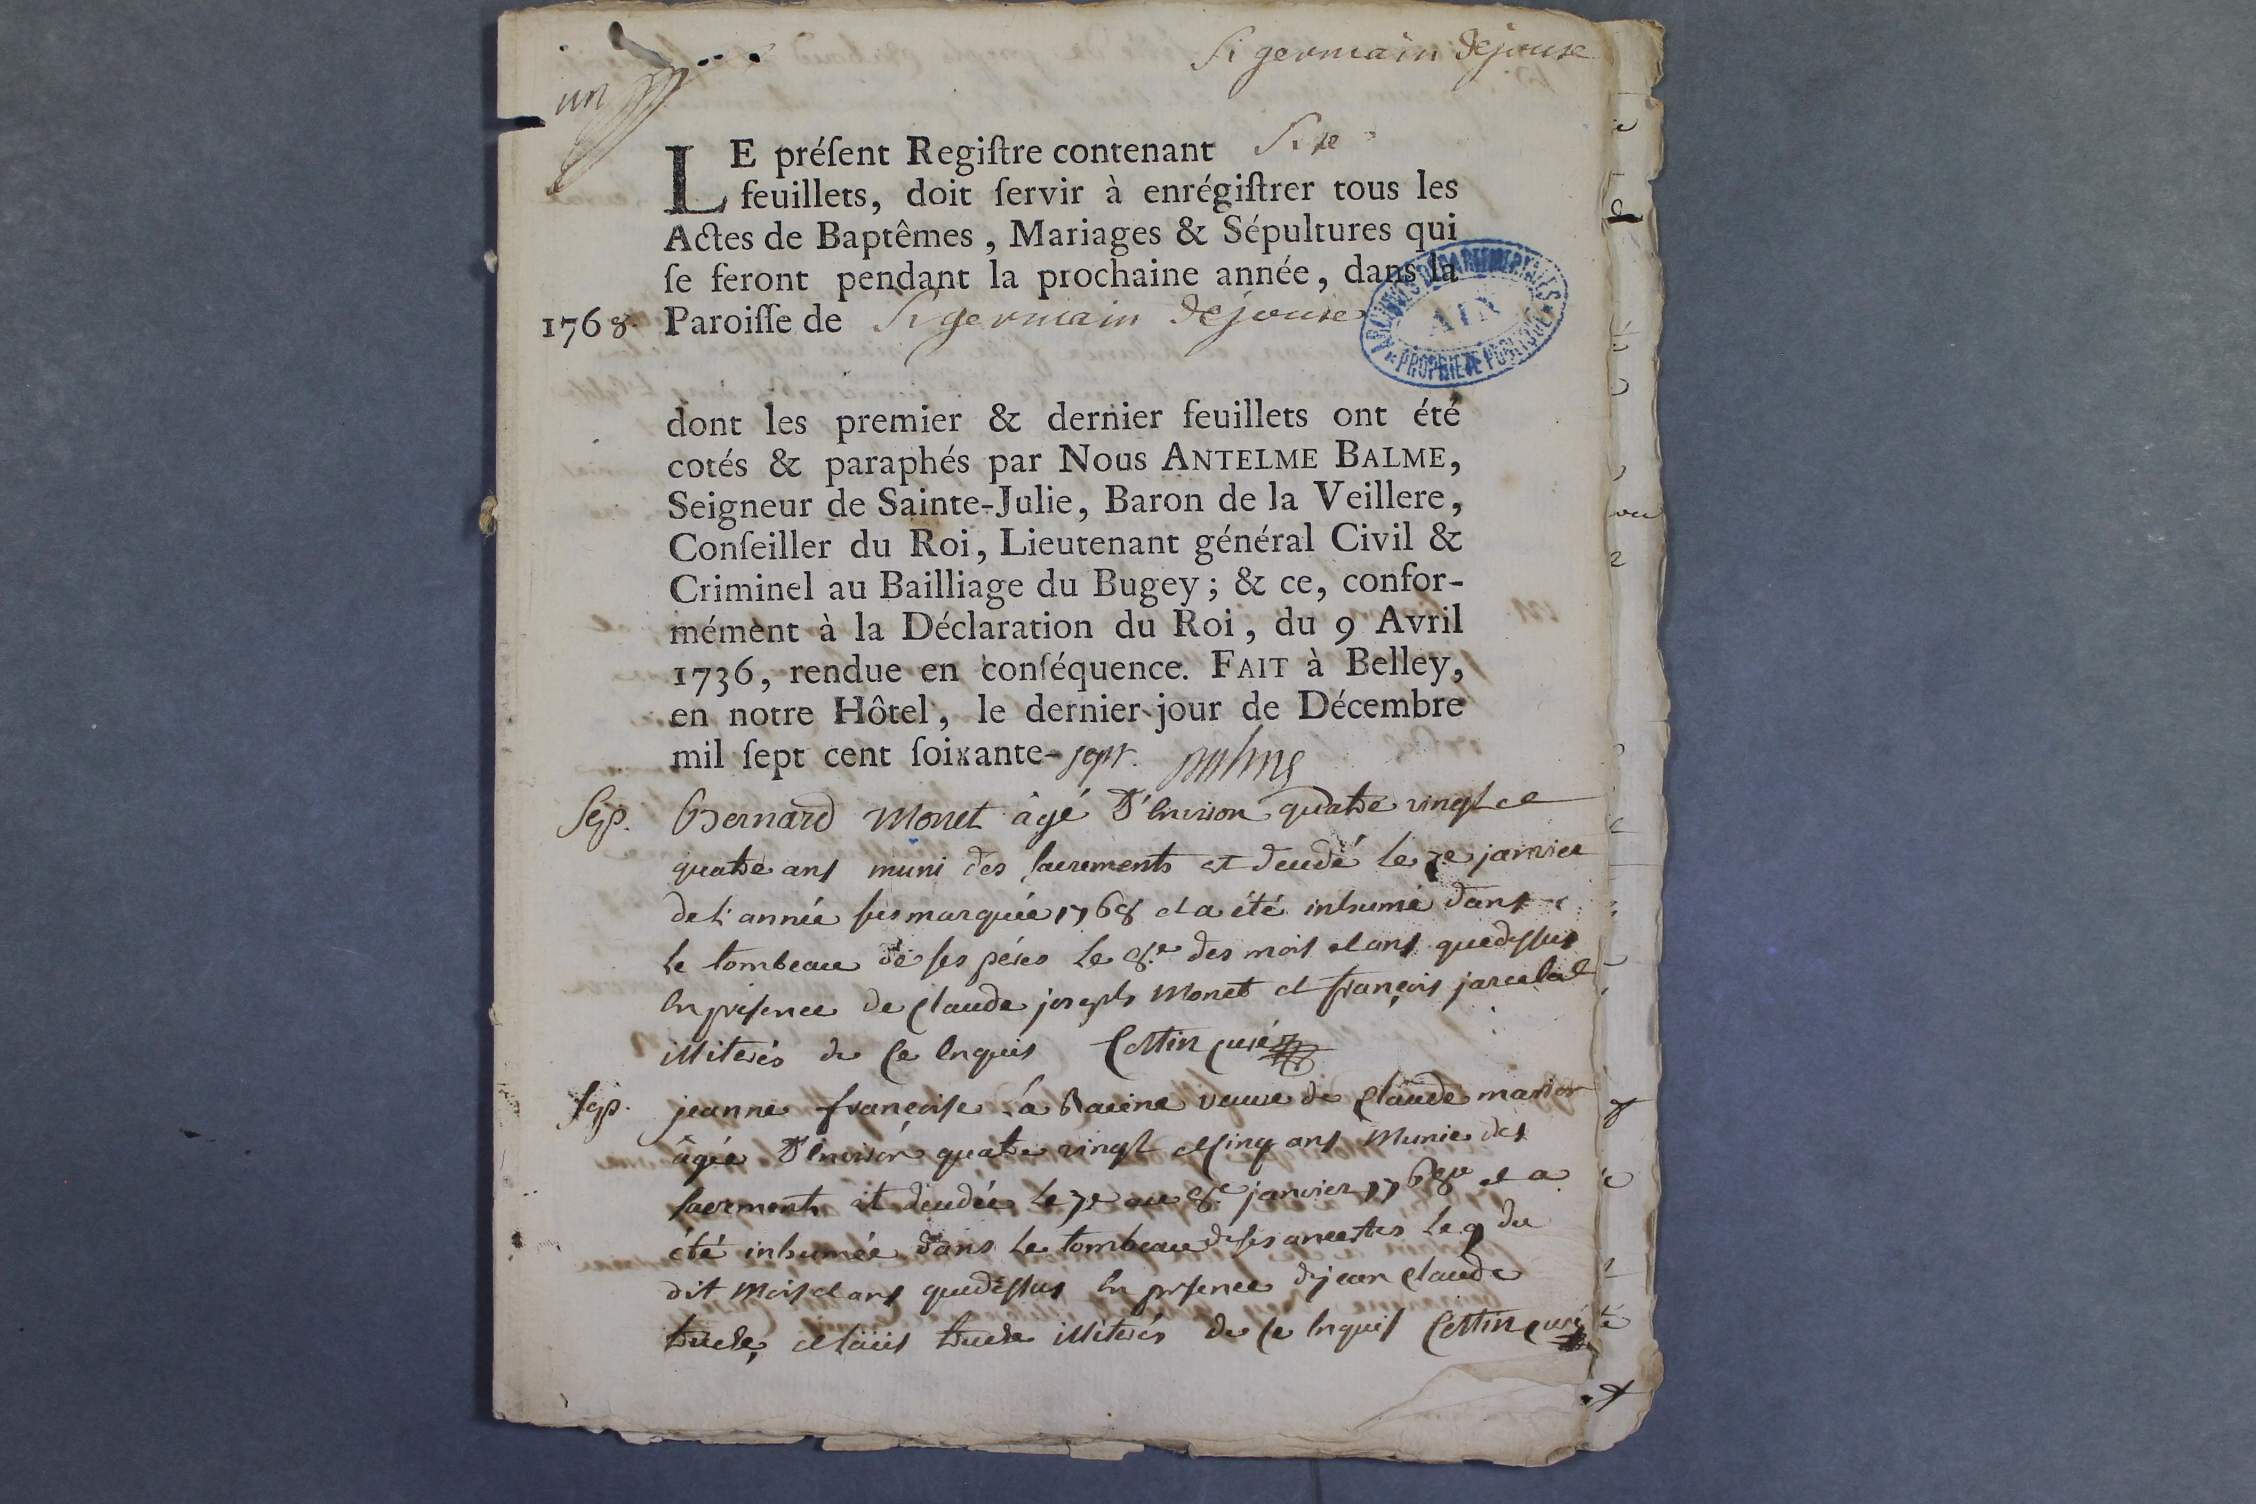 un
St germain dejouxe
LE préſent Regiſtre contenant Size
feuillets, doit ſervir à enrégiſtrer tous les
Actes de Baptêmes, Mariages & Sépultures qui
ſe feront pendant la prochaine année, dans la
1768. Paroiſſe de St germain dejouxe
ARCHIVES DÉPARTEMENTALES
AIN
PROPRIÉTÉ PUBLIQUE
dont les premier & dernier feuillets ont été
cotés & paraphés par Nous ANTELME BALME,
Seigneur de Sainte-Julie, Baron de la Veillere,
Conſeiller du Roi, Lieutenant général Civil &
Criminel au Bailliage du Bugey; & ce, confor-
mément à la Déclaration du Roi, du 9 Avril
1736, rendue en conſéquence. FAIT à Belley,
en notre Hôtel, le dernier jour de Décembre
mil ſept cent ſoixante-sept. Balme
Sep. Bernard Monet âgé D'Environ quatre vingt et
quatre ans muni des sacrements est deudé le 7e janvier
de l'année susmarquée 1768 et a été inhumé dans
le tombeau de ses péres le 8.e des mois et ans quedessus
En présence de Claude joseph Monet et françois
illiterés de ce Enquis Cottin curé
Sep. jeanne françoise La Racine veuve de Claude marion
âgée D'Environ quatre vingt et cinq ans Munie des
sacrements est deudée le 7e au 8.e janvier 1768 et a
été inhumée dans le tombeau de ses ancestes le 9 du
dit Mois et ans quedessus En présence de jean Claude
illiterés de ce Enquis Cottin curé